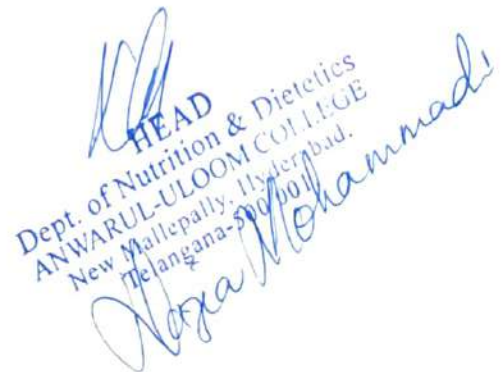 HEAD
Dept. of Nutrition & Dietetics
ANWARUL-ULOOM COLLEGE
New Mallepally, Hyderabad.
Telangana-500 001
Nazia Mohammadi